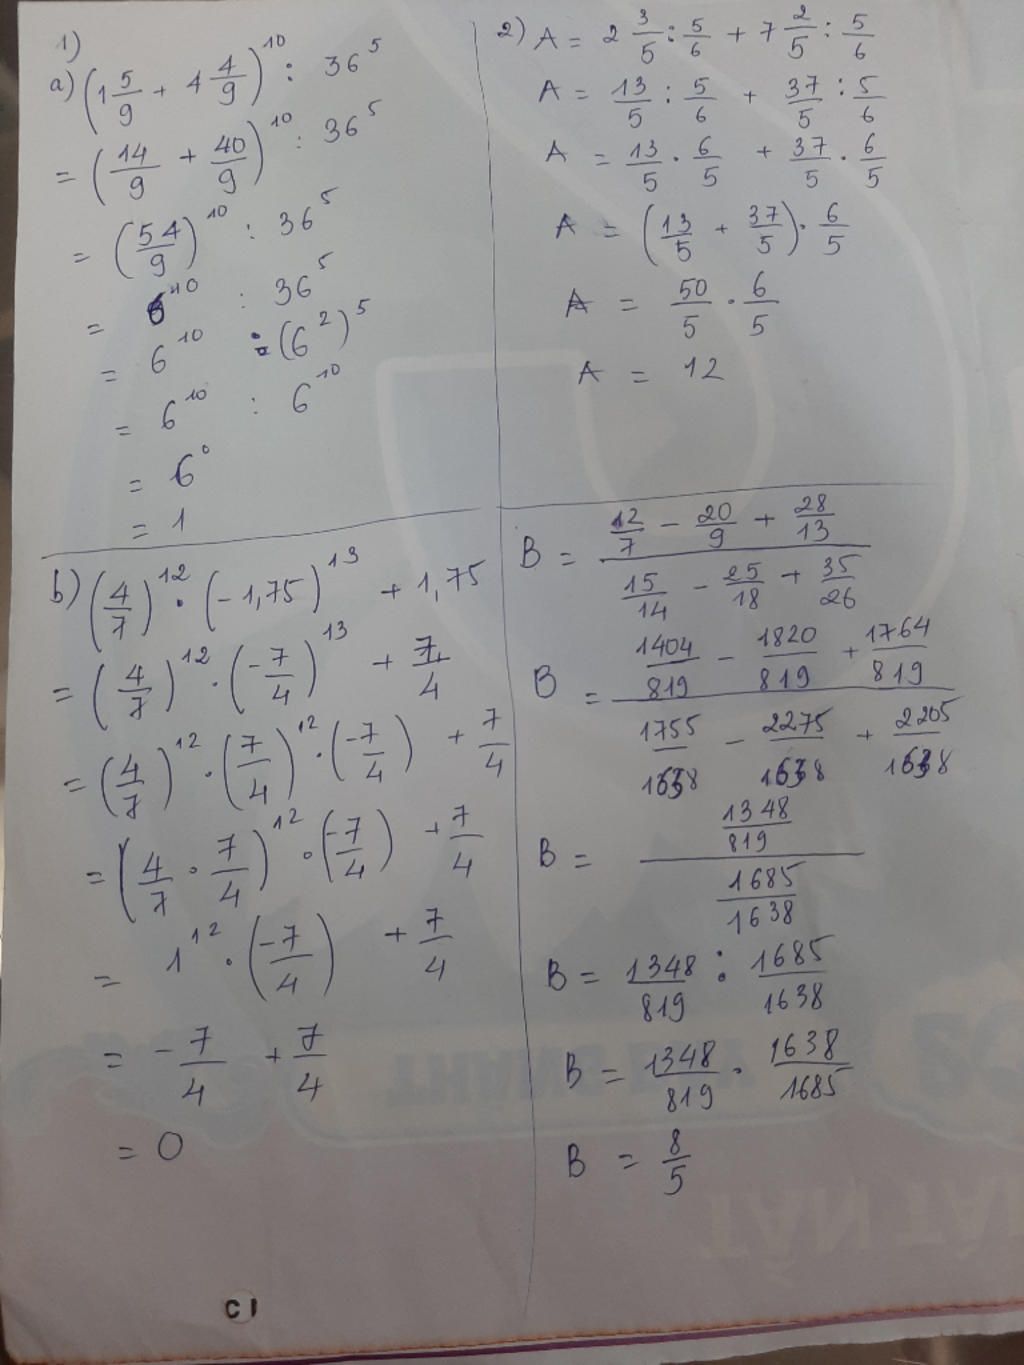 1)
a) (1 5/9 + 4 4/9)^10 : 36^5
= (14/9 + 40/9)^10 : 36^5
= (54/9)^10 : 36^5
= 6^10 : 36^5
= 6^10 : (6^2)^5
= 6^10 : 6^10
= 6^0
= 1
b) (4/7)^12 . (-1,75)^13 + 1,75
= (4/7)^12 . (-7/4)^13 + 7/4
= (4/7)^12 . (7/4)^12 . (-7/4) + 7/4
= (4/7 . 7/4)^12 . (-7/4) + 7/4
= 1^12 . (-7/4) + 7/4
= -7/4 + 7/4
= 0
2) A = 2 3/5 : 5/6 + 7 2/5 : 5/6
A = 13/5 : 5/6 + 37/5 : 5/6
A = 13/5 . 6/5 + 37/5 . 6/5
A = (13/5 + 37/5) . 6/5
A = 50/5 . 6/5
A = 12
B = (12/7 - 20/9 + 28/13) / (15/14 - 25/18 + 35/26)
B = (1404/819 - 1820/819 + 1764/819) / (1755/1638 - 2275/1638 + 2205/1638)
B = (1348/819) / (1685/1638)
B = 1348/819 : 1685/1638
B = 1348/819 . 1638/1685
B = 8/5
C1